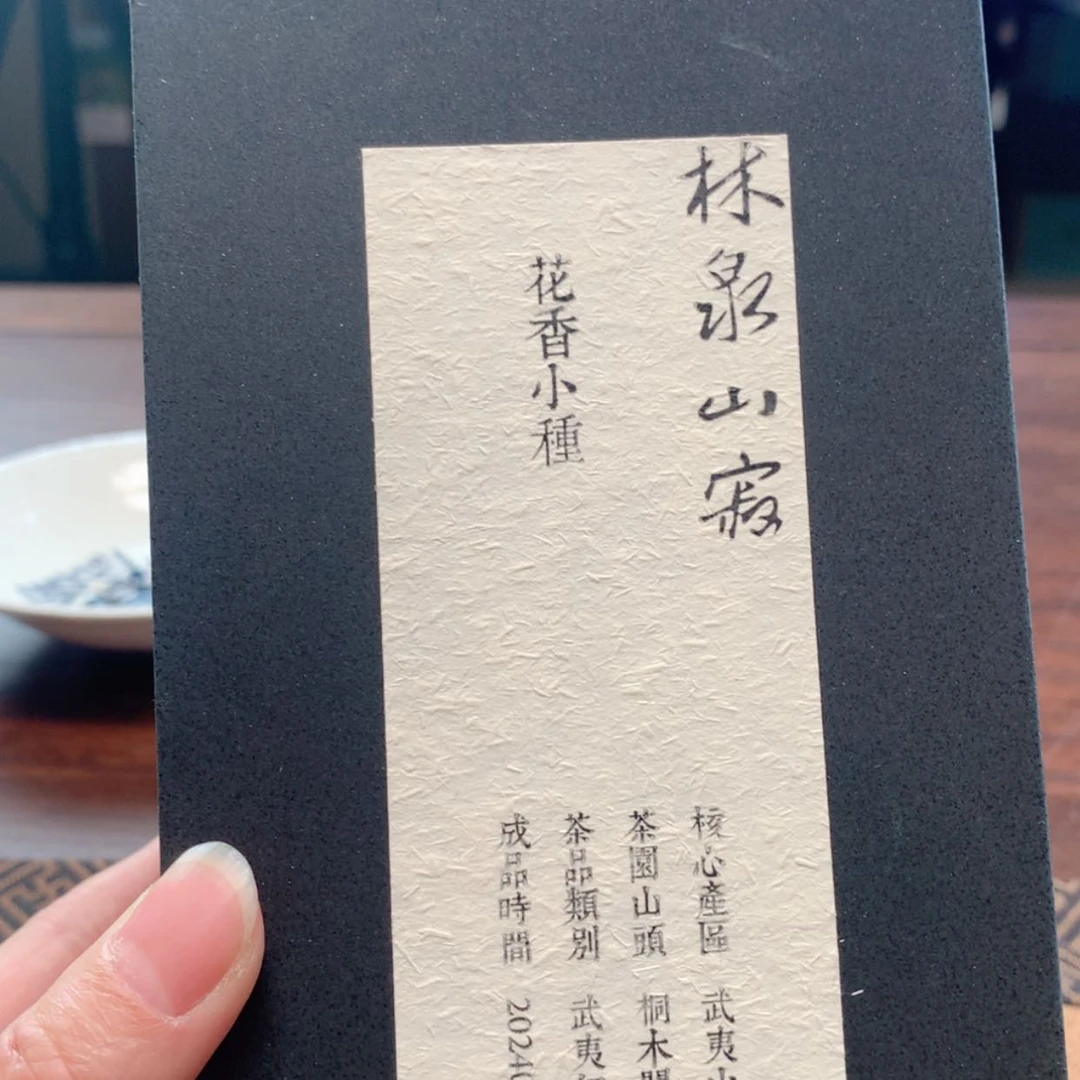 林泉山寂
花香小種
核心產區 武夷山
茶園山頭 桐木關
茶品類別 武夷
成品時間 2024